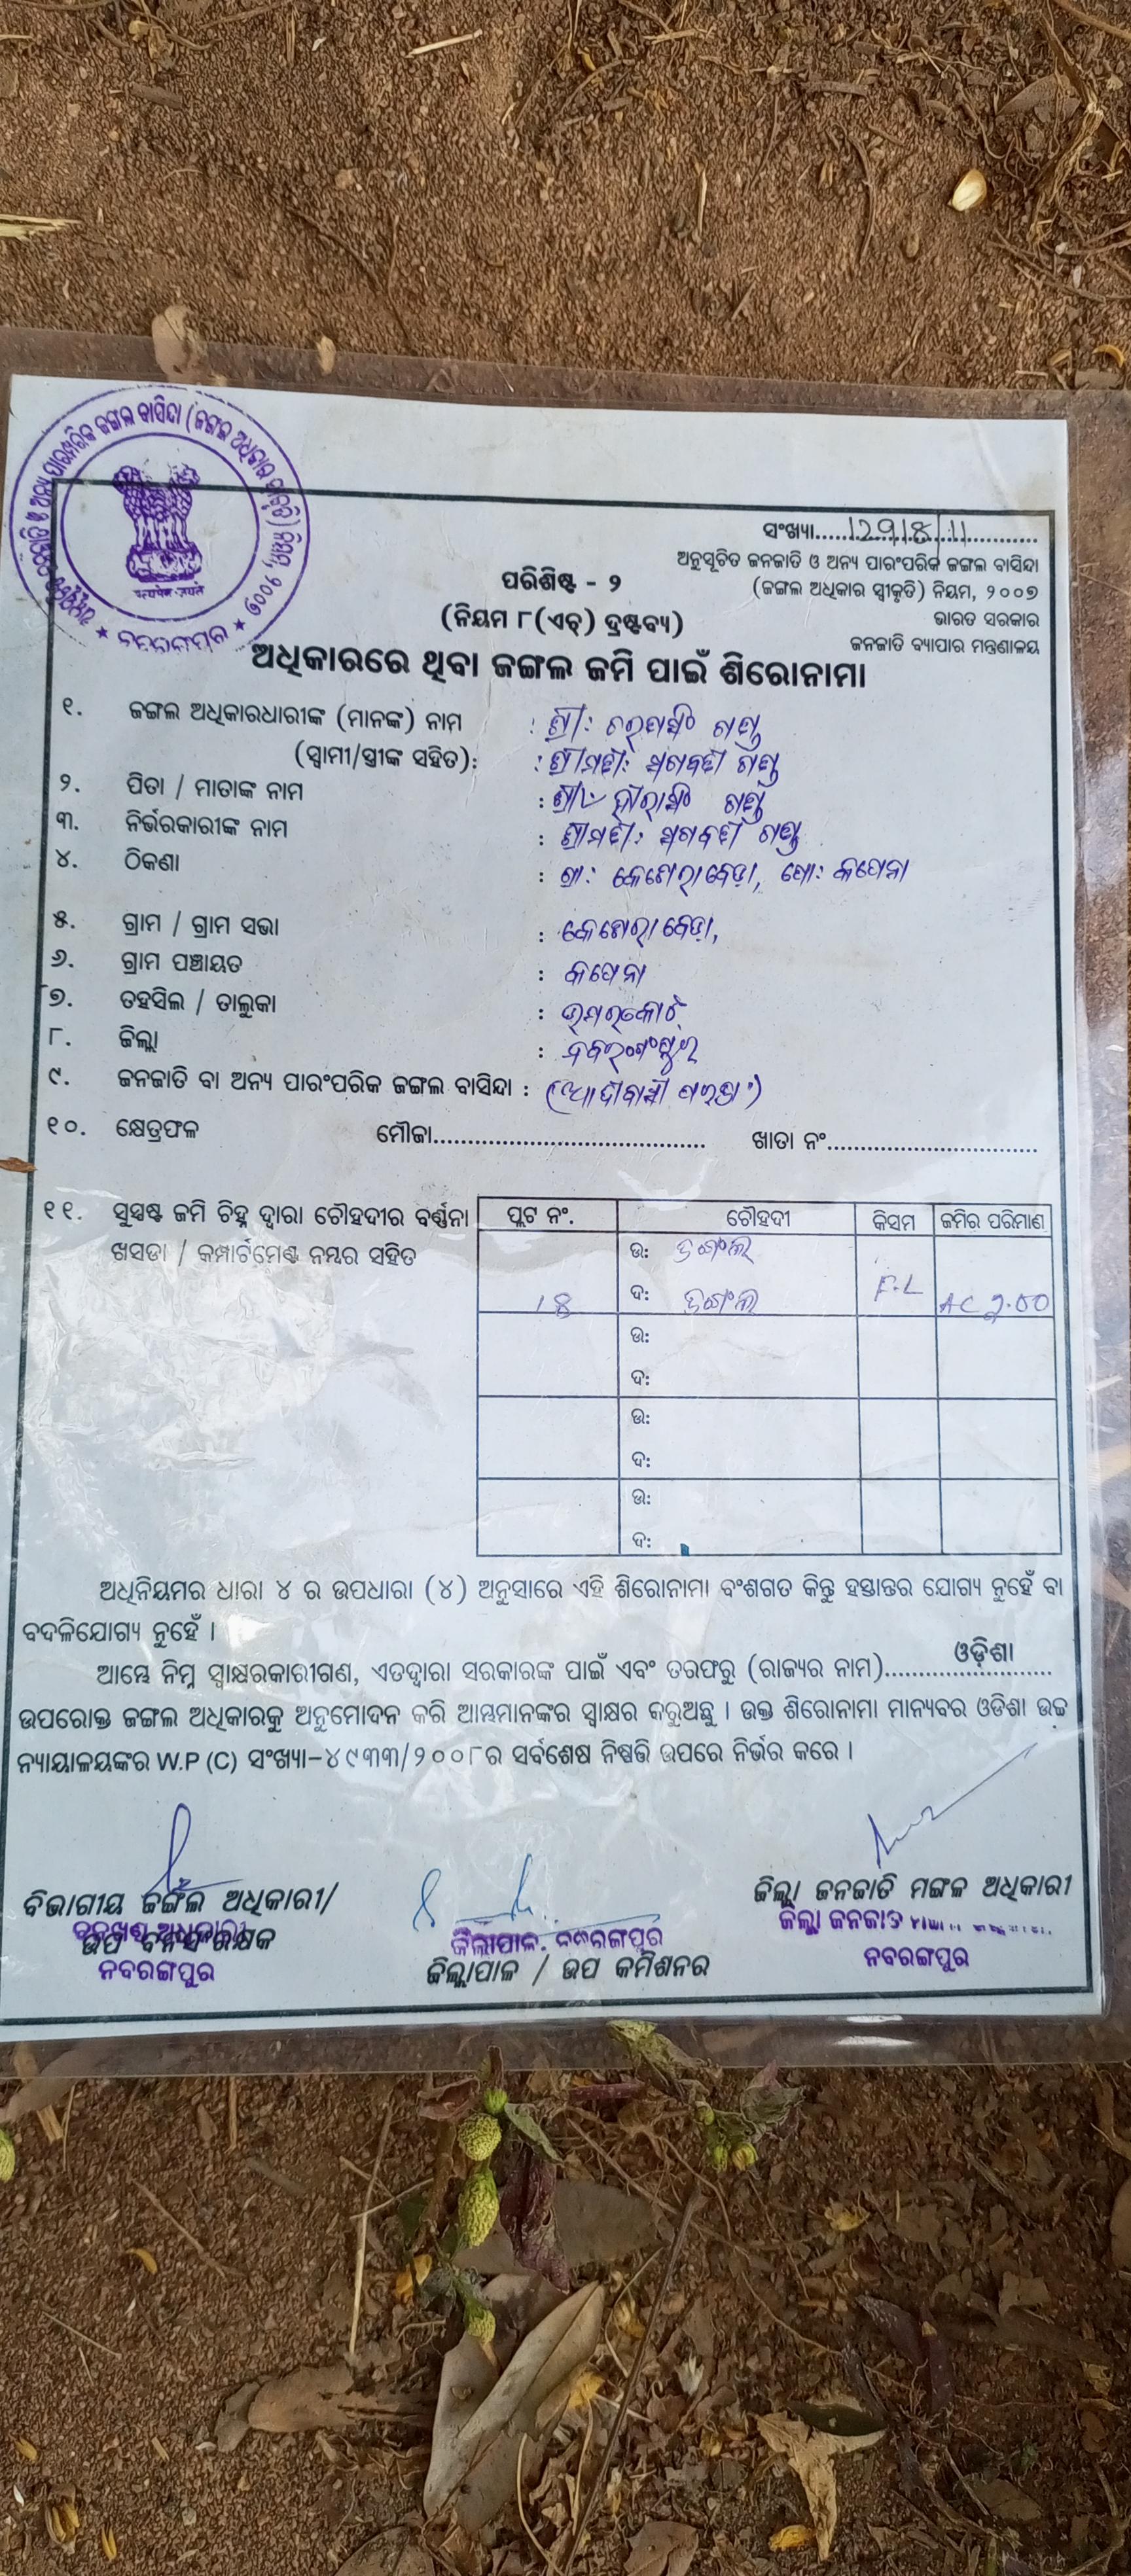 ସଂଖ୍ୟା
ଅନୁସୂଚିତ ଜନଜାତି ଓ ଅନ୍ୟ ପାରଂପରିକ ଜଙ୍ଗଲ ବାସିନ୍ଦା
(ଜଙ୍ଗଲ ଅଧିକାର ସ୍ୱୀକୃତି) ନିୟମ, ୨୦୦୭
ଭାରତ ସରକାର
ଜନଜାତି ବ୍ୟାପାର ମନ୍ତ୍ରଣାଳୟ
ପରିଶିଷ୍ଟ - ୨
(ନିୟମ ୮(ଏଚ୍) ଦ୍ରଷ୍ଟବ୍ୟ)
ଅଧିକାରରେ ଥିବା ଜଙ୍ଗଲ ଜମି ପାଇଁ ଶିରୋନାମା
୧. ଜଙ୍ଗଲ ଅଧିକାରଧାରୀଙ୍କ (ମାନଙ୍କ) ନାମ : ଶ୍ରୀ:
(ସ୍ୱାମୀ/ସ୍ତ୍ରୀଙ୍କ ସହିତ): : ଶ୍ରୀମତୀ:
୨. ପିତା / ମାତାଙ୍କ ନାମ :
୩. ନିର୍ଭରକାରୀଙ୍କ ନାମ : ଶ୍ରୀମତୀ:
୪. ଠିକଣା :
୫. ଗ୍ରାମ / ଗ୍ରାମ ସଭା :
୬. ଗ୍ରାମ ପଞ୍ଚାୟତ :
୭. ତହସିଲ / ତାଲୁକା : ଉମରକୋଟ
୮. ଜିଲ୍ଲା : ନବରଂଗପୁର
୯. ଜନଜାତି ବା ଅନ୍ୟ ପାରଂପରିକ ଜଙ୍ଗଲ ବାସିନ୍ଦା : (ଆଦୀବାସୀ
୧୦. କ୍ଷେତ୍ରଫଳ ମୌଜା........ ଖାତା ନଂ........
୧୧. ସୁସ୍ପଷ୍ଟ ଜମି ଚିହ୍ନ ଦ୍ୱାରା ଚୌହଦୀର ବର୍ଣ୍ଣନା
ଖସଡା / କମ୍ପାର୍ଟମେଣ୍ଟ ନମ୍ବର ସହିତ
ପ୍ଲଟ ନଂ. ଚୌହଦୀ କିସମ ଜମିର ପରିମାଣ
ଉ: ଜଙ୍ଗଲ
18 ଦ: ଜଙ୍ଗଲ F.L AC 2.00
ଉ:
ଦ:
ଉ:
ଦ:
ଉ:
ଦ:
ଅଧିନିୟମର ଧାରା ୪ ର ଉପଧାରା (୪) ଅନୁସାରେ ଏହି ଶିରୋନାମା ବଂଶଗତ କିନ୍ତୁ ହସ୍ତାନ୍ତର ଯୋଗ୍ୟ ନୁହେଁ ବା
ବଦଳିଯୋଗ୍ୟ ନୁହେଁ ।
ଆମ୍ଭେ ନିମ୍ନ ସ୍ୱାକ୍ଷରକାରୀଗଣ, ଏତଦ୍ୱାରା ସରକାରଙ୍କ ପାଇଁ ଏବଂ ତରଫରୁ (ରାଜ୍ୟର ନାମ)....ଓଡ଼ିଶା....
ଉପରୋକ୍ତ ଜଙ୍ଗଲ ଅଧିକାରକୁ ଅନୁମୋଦନ କରି ଆମ୍ଭମାନଙ୍କର ସ୍ୱାକ୍ଷର କରୁଅଛୁ । ଉକ୍ତ ଶିରୋନାମା ମାନ୍ୟବର ଓଡିଶା ଉଚ୍ଚ
ନ୍ୟାୟାଳୟଙ୍କର W.P (C) ସଂଖ୍ୟା-୪୯୩୩/୨୦୦୮ର ସର୍ବଶେଷ ନିଷ୍ପତ୍ତି ଉପରେ ନିର୍ଭର କରେ ।
ବିଭାଗୀୟ ଜଙ୍ଗଲ ଅଧିକାରୀ/
ଉପ ବନସଂରକ୍ଷକ
ବନଖଣ୍ଡ ଅଧିକାରୀ
ନବରଙ୍ଗପୁର
ଜିଲାପାଳ, ନବରଙ୍ଗପୁର
ଜିଲ୍ଲାପାଳ / ଉପ କମିଶନର
ଜିଲ୍ଲା ଜନଜାତି ମଙ୍ଗଳ ଅଧିକାରୀ
ଜିଲ୍ଲା ଜନଜାତି
ନବରଙ୍ଗପୁର